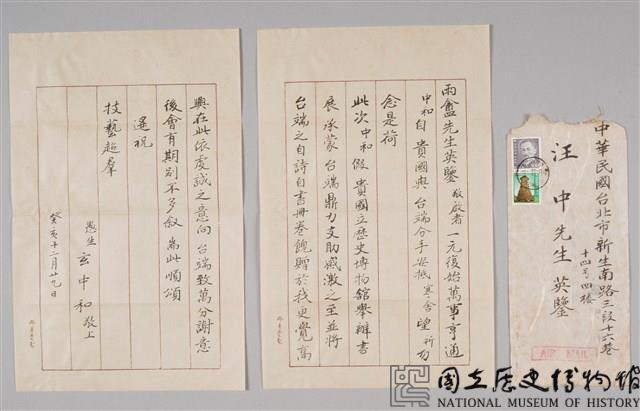 雨盦先生英鑒 敬啟者 一元復始萬事亨通
中和自 貴國與 台端分手安抵寒舍望祈勿
念是荷
此次中和假 貴國立歷史博物館舉辦書
展承蒙 台端鼎力支助感激之至並將
台端之自詩自書冊卷餽贈於找更覺萬
興在此依虔誠之意向 台端致萬分謝意
後會有期別不多敘 耑此順頌
遥祝
技藝超羣
愚生 玄中和敬上
癸亥十二月廿九日
中華民國台北市新生南路三段十六巷
十四号四楼
汪中先生英鑒
AIR MAIL
國立歷史博物館
NATIONAL MUSEUM OF HISTORY